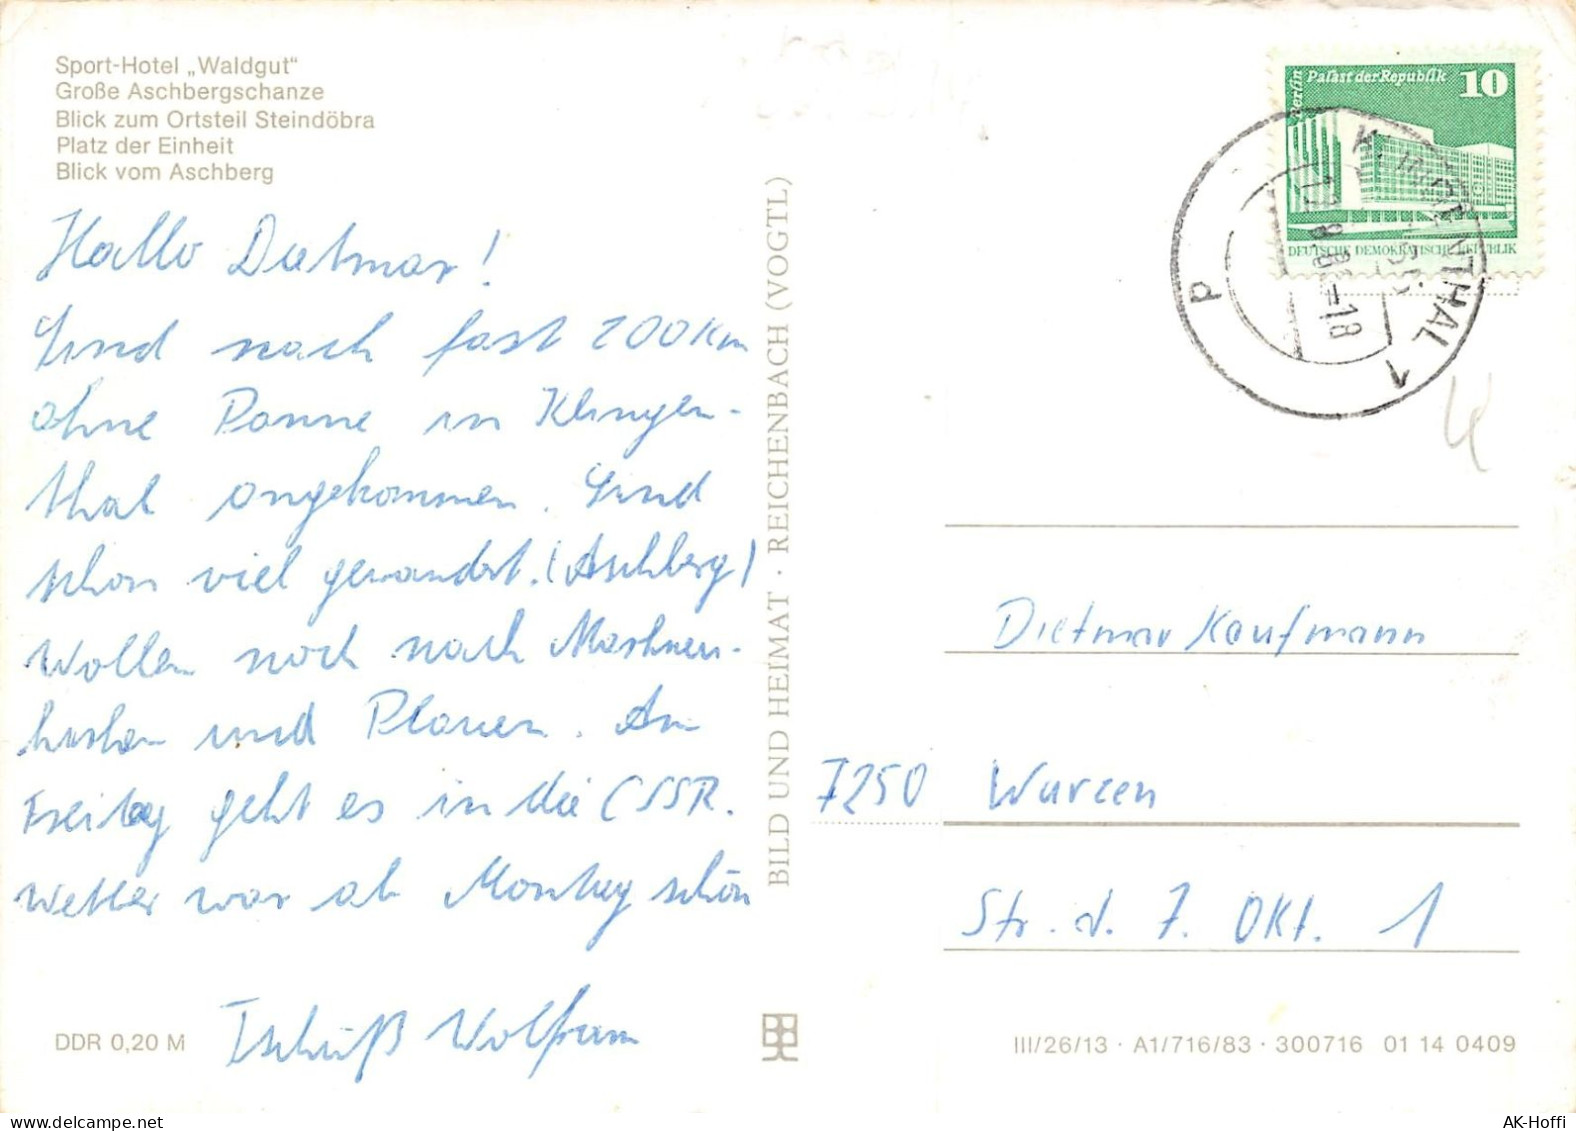 Sport-Hotel „Waldgut“
Große Aschbergschanze
Blick zum Ortsteil Steindöbra
Platz der Einheit
Blick vom Aschberg
Hallo Dietmar!
Sind nach fast 200 Km
ohne Panne in Klingen-
thal angekommen. Sind
schon viel gewandert. (Aschberg)
Wollen noch nach Markneu-
kirchen und Plauen. Am
Freitag geht es in die CSSR.
Wetter war ab Montag schön
Tschüß Wolfram
DDR 0,20 M
BILD UND HEIMAT · REICHENBACH (VOGTL)
Berlin Palast der Republik 10
DEUTSCHE DEMOKRATISCHE REPUBLIK
KLINGENTHAL 1
P
Dietmar Kaufmann
7250 Wurzen
Str. d. 7. Okt. 1
III/26/13 · A1/716/83 · 300716 01 14 0409
www.delcampe.net
AK-Hoffi